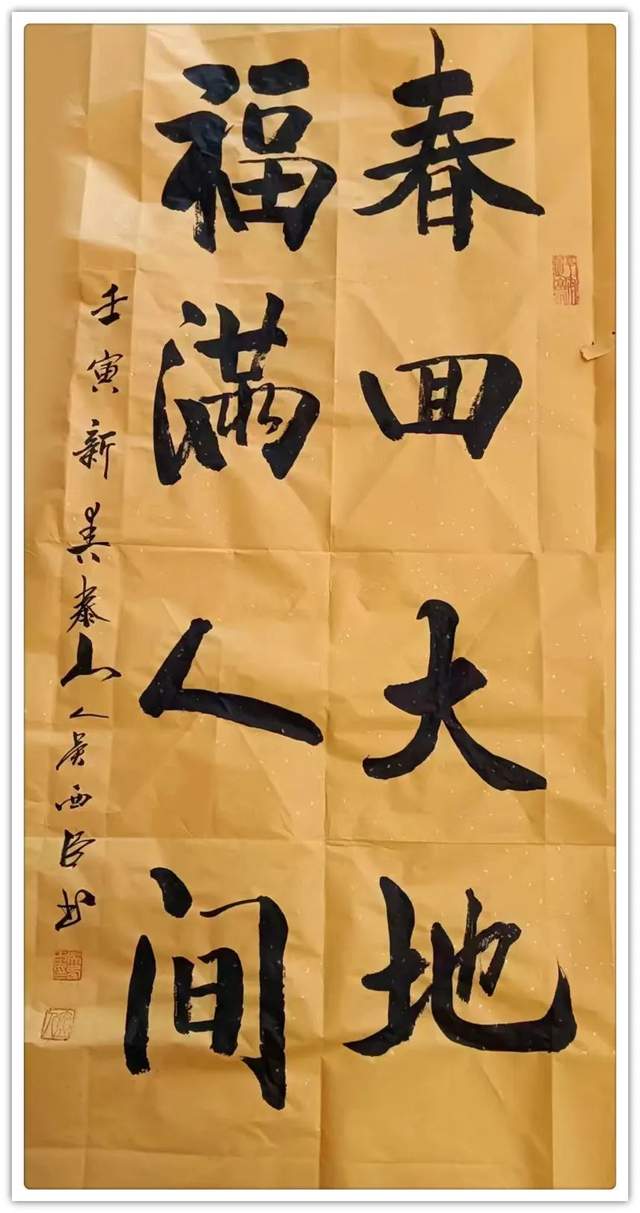 春回大地
福满人间
壬寅新春泰山人吴西臣书